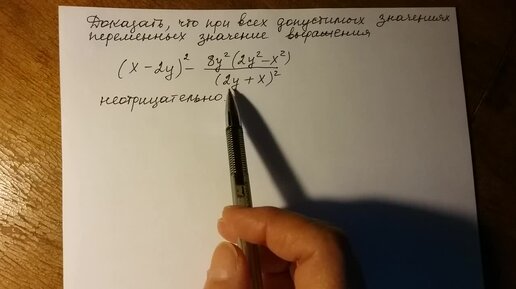 Доказать, что при всех допустимых значениях
переменных значение выражения
(x - 2y)² - 8y²(2y² - x²) / (2y + x)²
неотрицательно